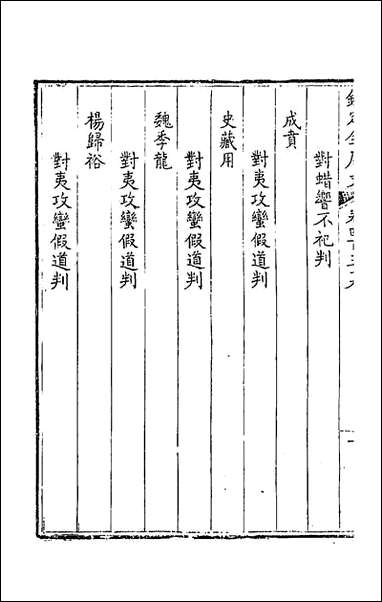 欽定全唐文卷四百三十
對蜡饗不祀判
成賁
對夷攻蠻假道判
史藏用
對夷攻蠻假道判
魏季龍
對夷攻蠻假道判
楊歸裕
對夷攻蠻假道判